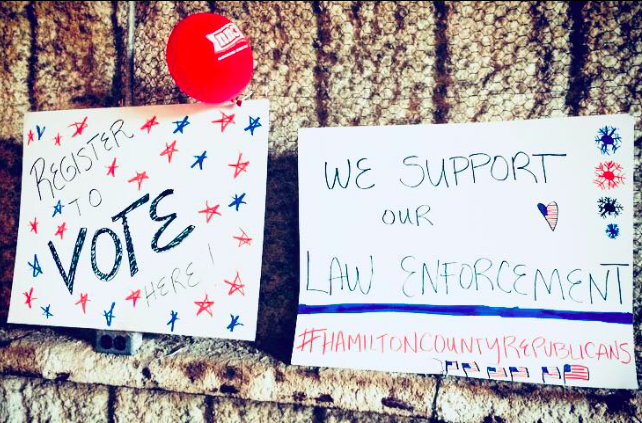 REGISTER
TO
VOTE
HERE!
WE SUPPORT
OUR
LAW ENFORCEMENT
#HAMILTONCOUNTYREPUBLICANS